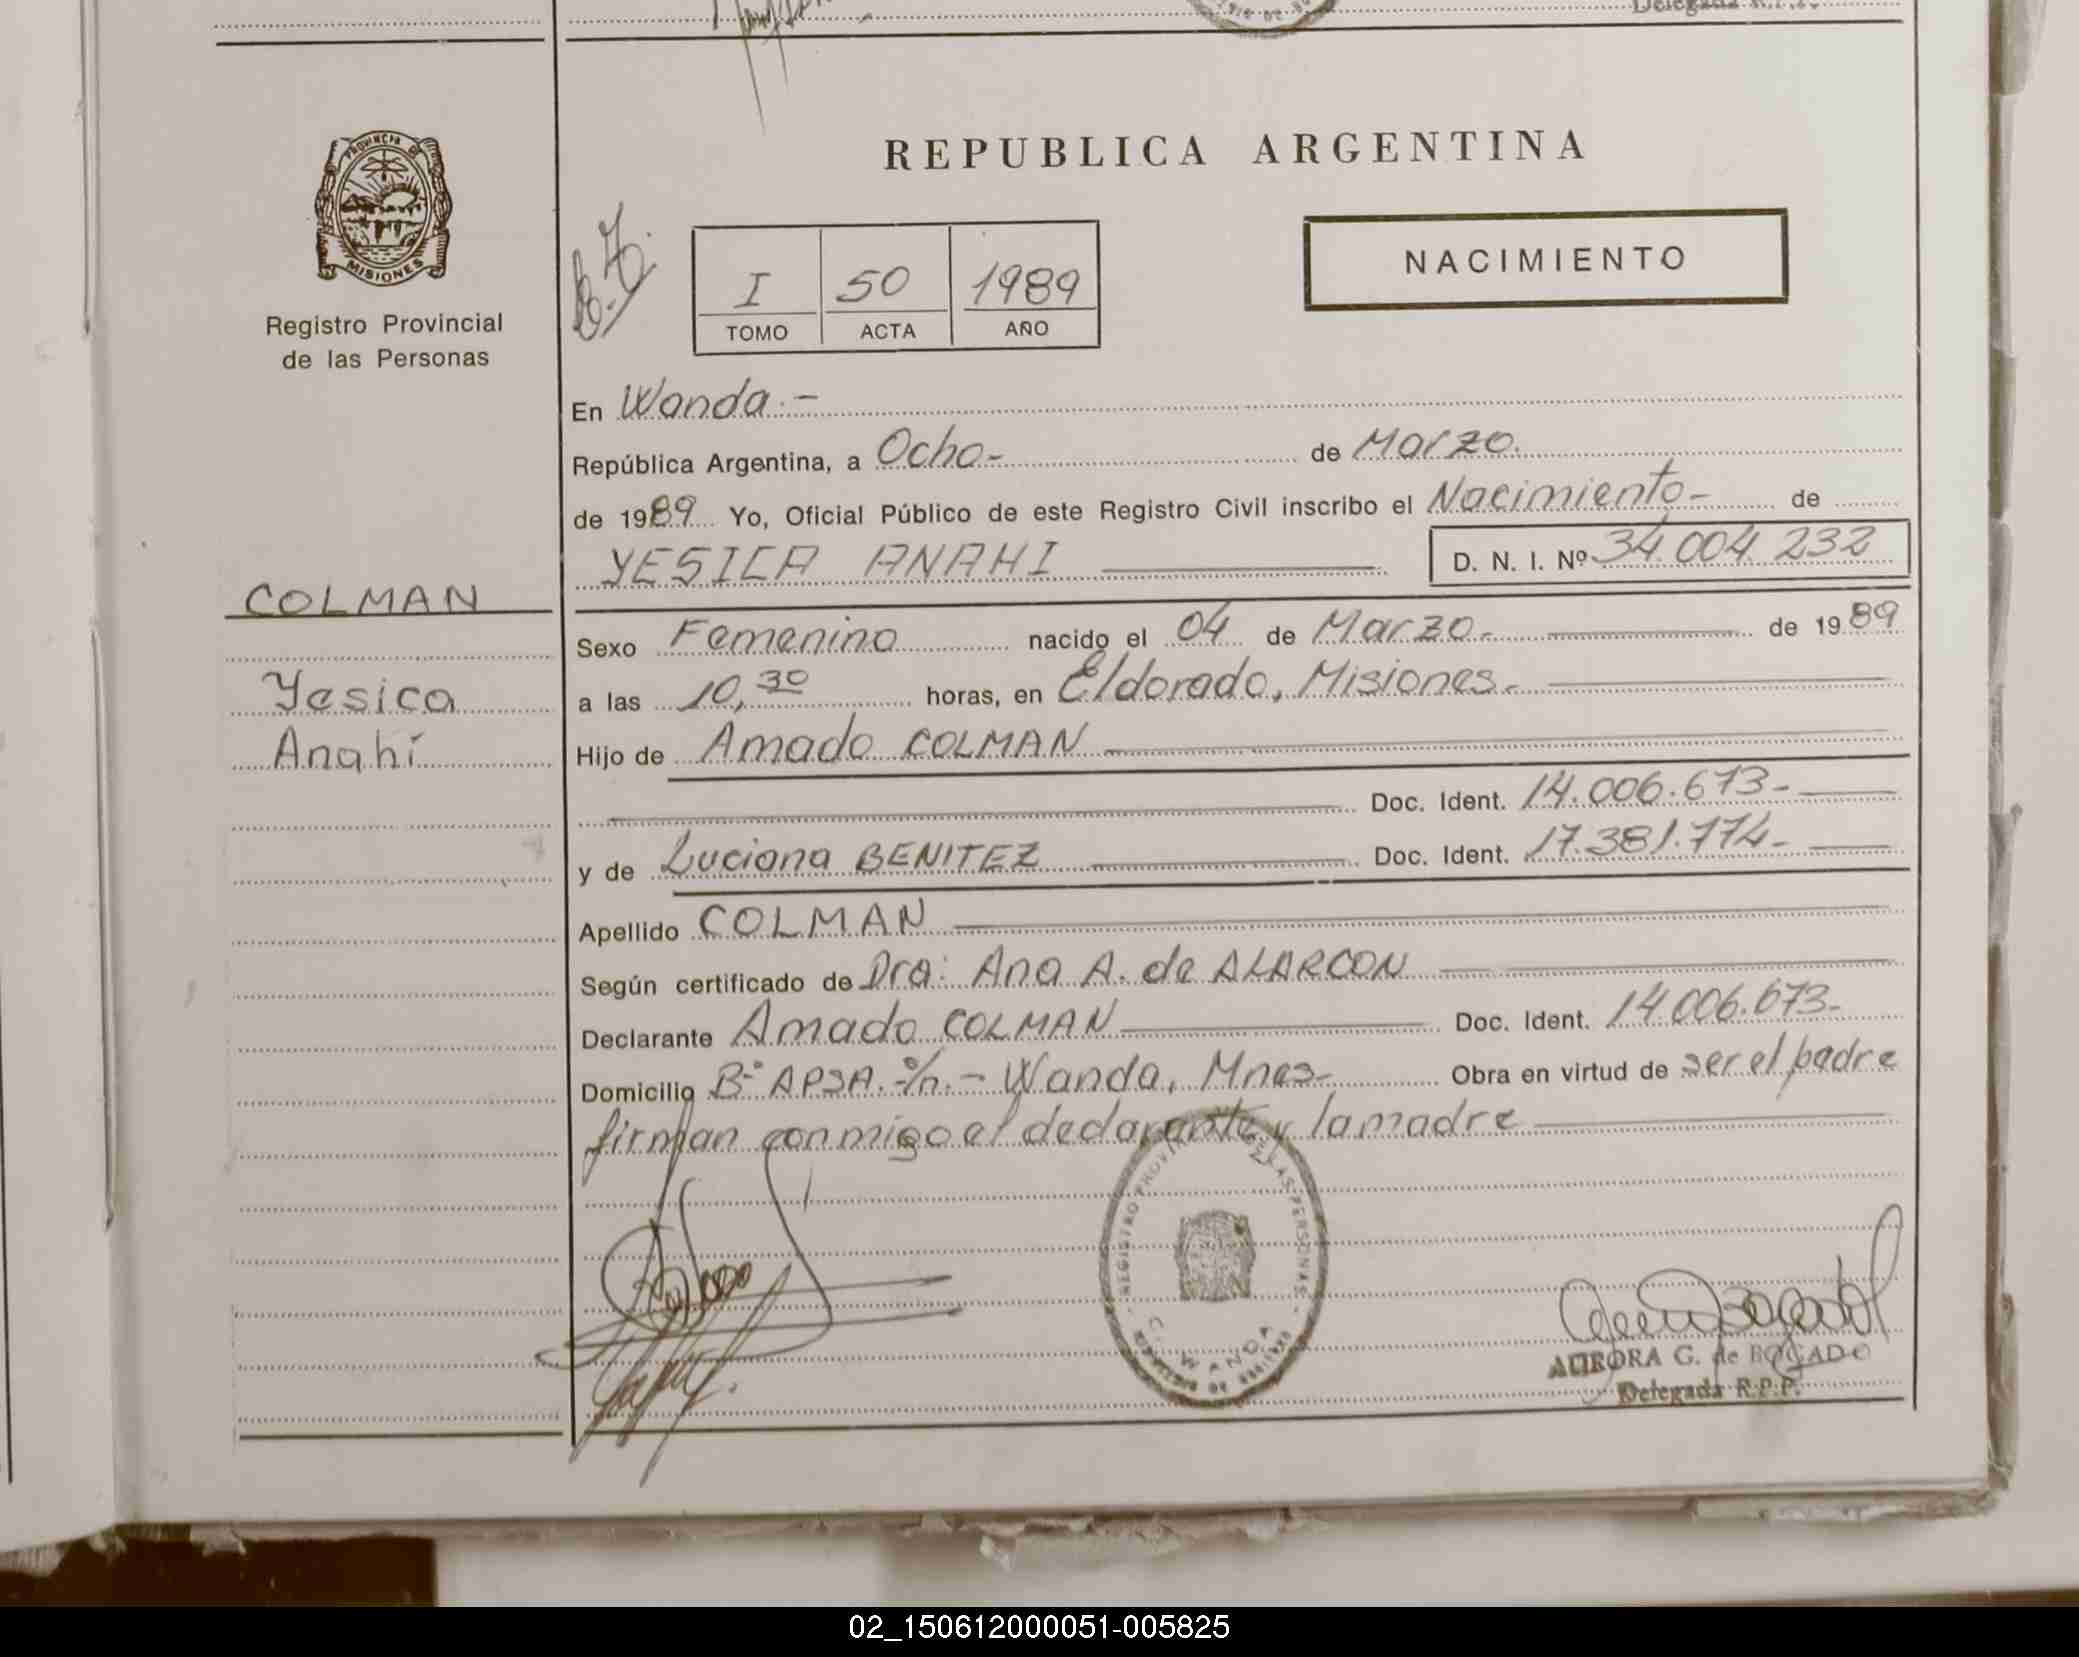 Delegada R.P.P.
PROVINCIA DE
MISIONES
Registro Provincial
de las Personas
COLMAN
Yesica
Anahí
REPUBLICA ARGENTINA
I 50 1989
TOMO ACTA AÑO
NACIMIENTO
En Wanda.-
República Argentina, a Ocho- de Marzo.
de 1989 Yo, Oficial Público de este Registro Civil inscribo el Nacimiento- de
YESICA ANAHI D. N. I. Nº 34.004.232
Sexo Femenino nacido el 04 de Marzo.- de 1989
a las 10,30 horas, en Eldorado, Misiones.-
Hijo de Amado COLMAN
Doc. Ident. 14.006.673-
y de Luciana BENITEZ Doc. Ident. 17.381.774-
Apellido COLMAN
Según certificado de Dra: Ana A. de ALARCON
Declarante Amado COLMAN Doc. Ident. 14.006.673-
Domicilio Bº APSA. s/n.- Wanda, Mnes- Obra en virtud de ser el padre
firman conmigo el declarante y la madre
REGISTRO PROVINCIAL DE LAS PERSONAS
WANDA
AURORA G. de BOGADO
Delegada R.P.P.
02_150612000051-005825